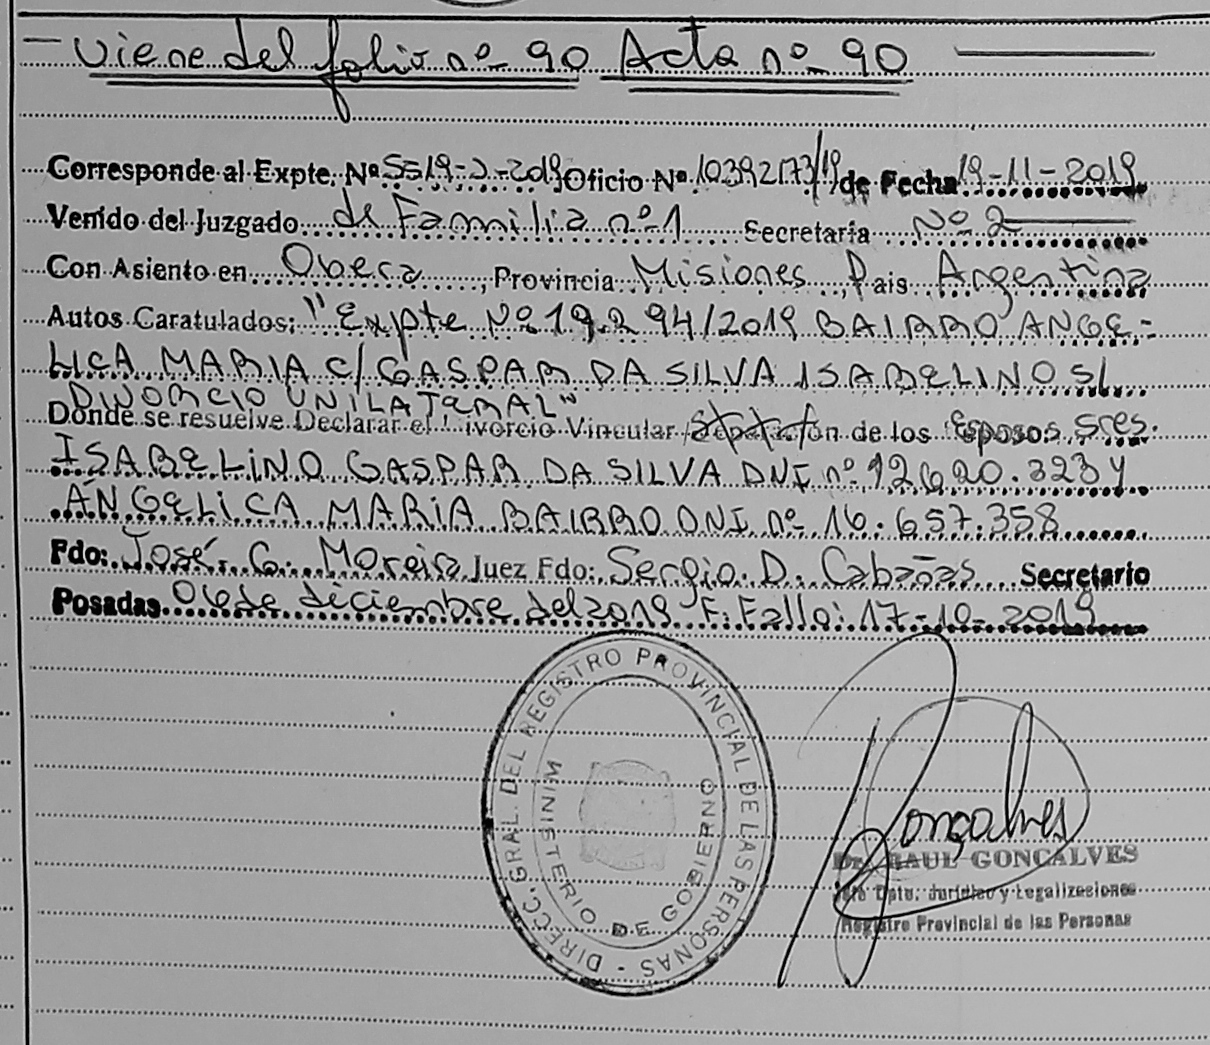 — Viene del folio nº 90 Acta nº 90 —
Corresponde al Expte. Nº 5519-2-2019 Oficio Nº 10392173/19 de Fecha 19-11-2019
Venido del Juzgado de Familia nº 1 Secretaria Nº 2
Con Asiento en Obera, Provincia Misiones, Pais Argentina
Autos Caratulados: "Expte Nº 19.294/2019 BAIRRO ANGE-
LICA MARIA C/ GASPAR DA SILVA ISABELINO S/
DIVORCIO UNILATERAL"
Donde se resuelve Declarar el Divorcio Vincular de los Esposos Sres.
ISABELINO GASPAR DA SILVA DNI nº 12.620.323 Y
ANGELICA MARIA BAIRRO DNI nº 16.657.358
Fdo: José G. Moreira Juez Fdo: Sergio D. Cabañas Secretario
Posadas 06 de diciembre del 2019 F. Fallo: 17-10-2019
DIRECC. GRAL. DEL REGISTRO PROVINCIAL DE LAS PERSONAS -
MINISTERIO DE GOBIERNO
Gonçalves
Dr. RAUL GONCALVES
Jefe Dpto. Jurídico y Legalizaciones
Registro Provincial de las Personas